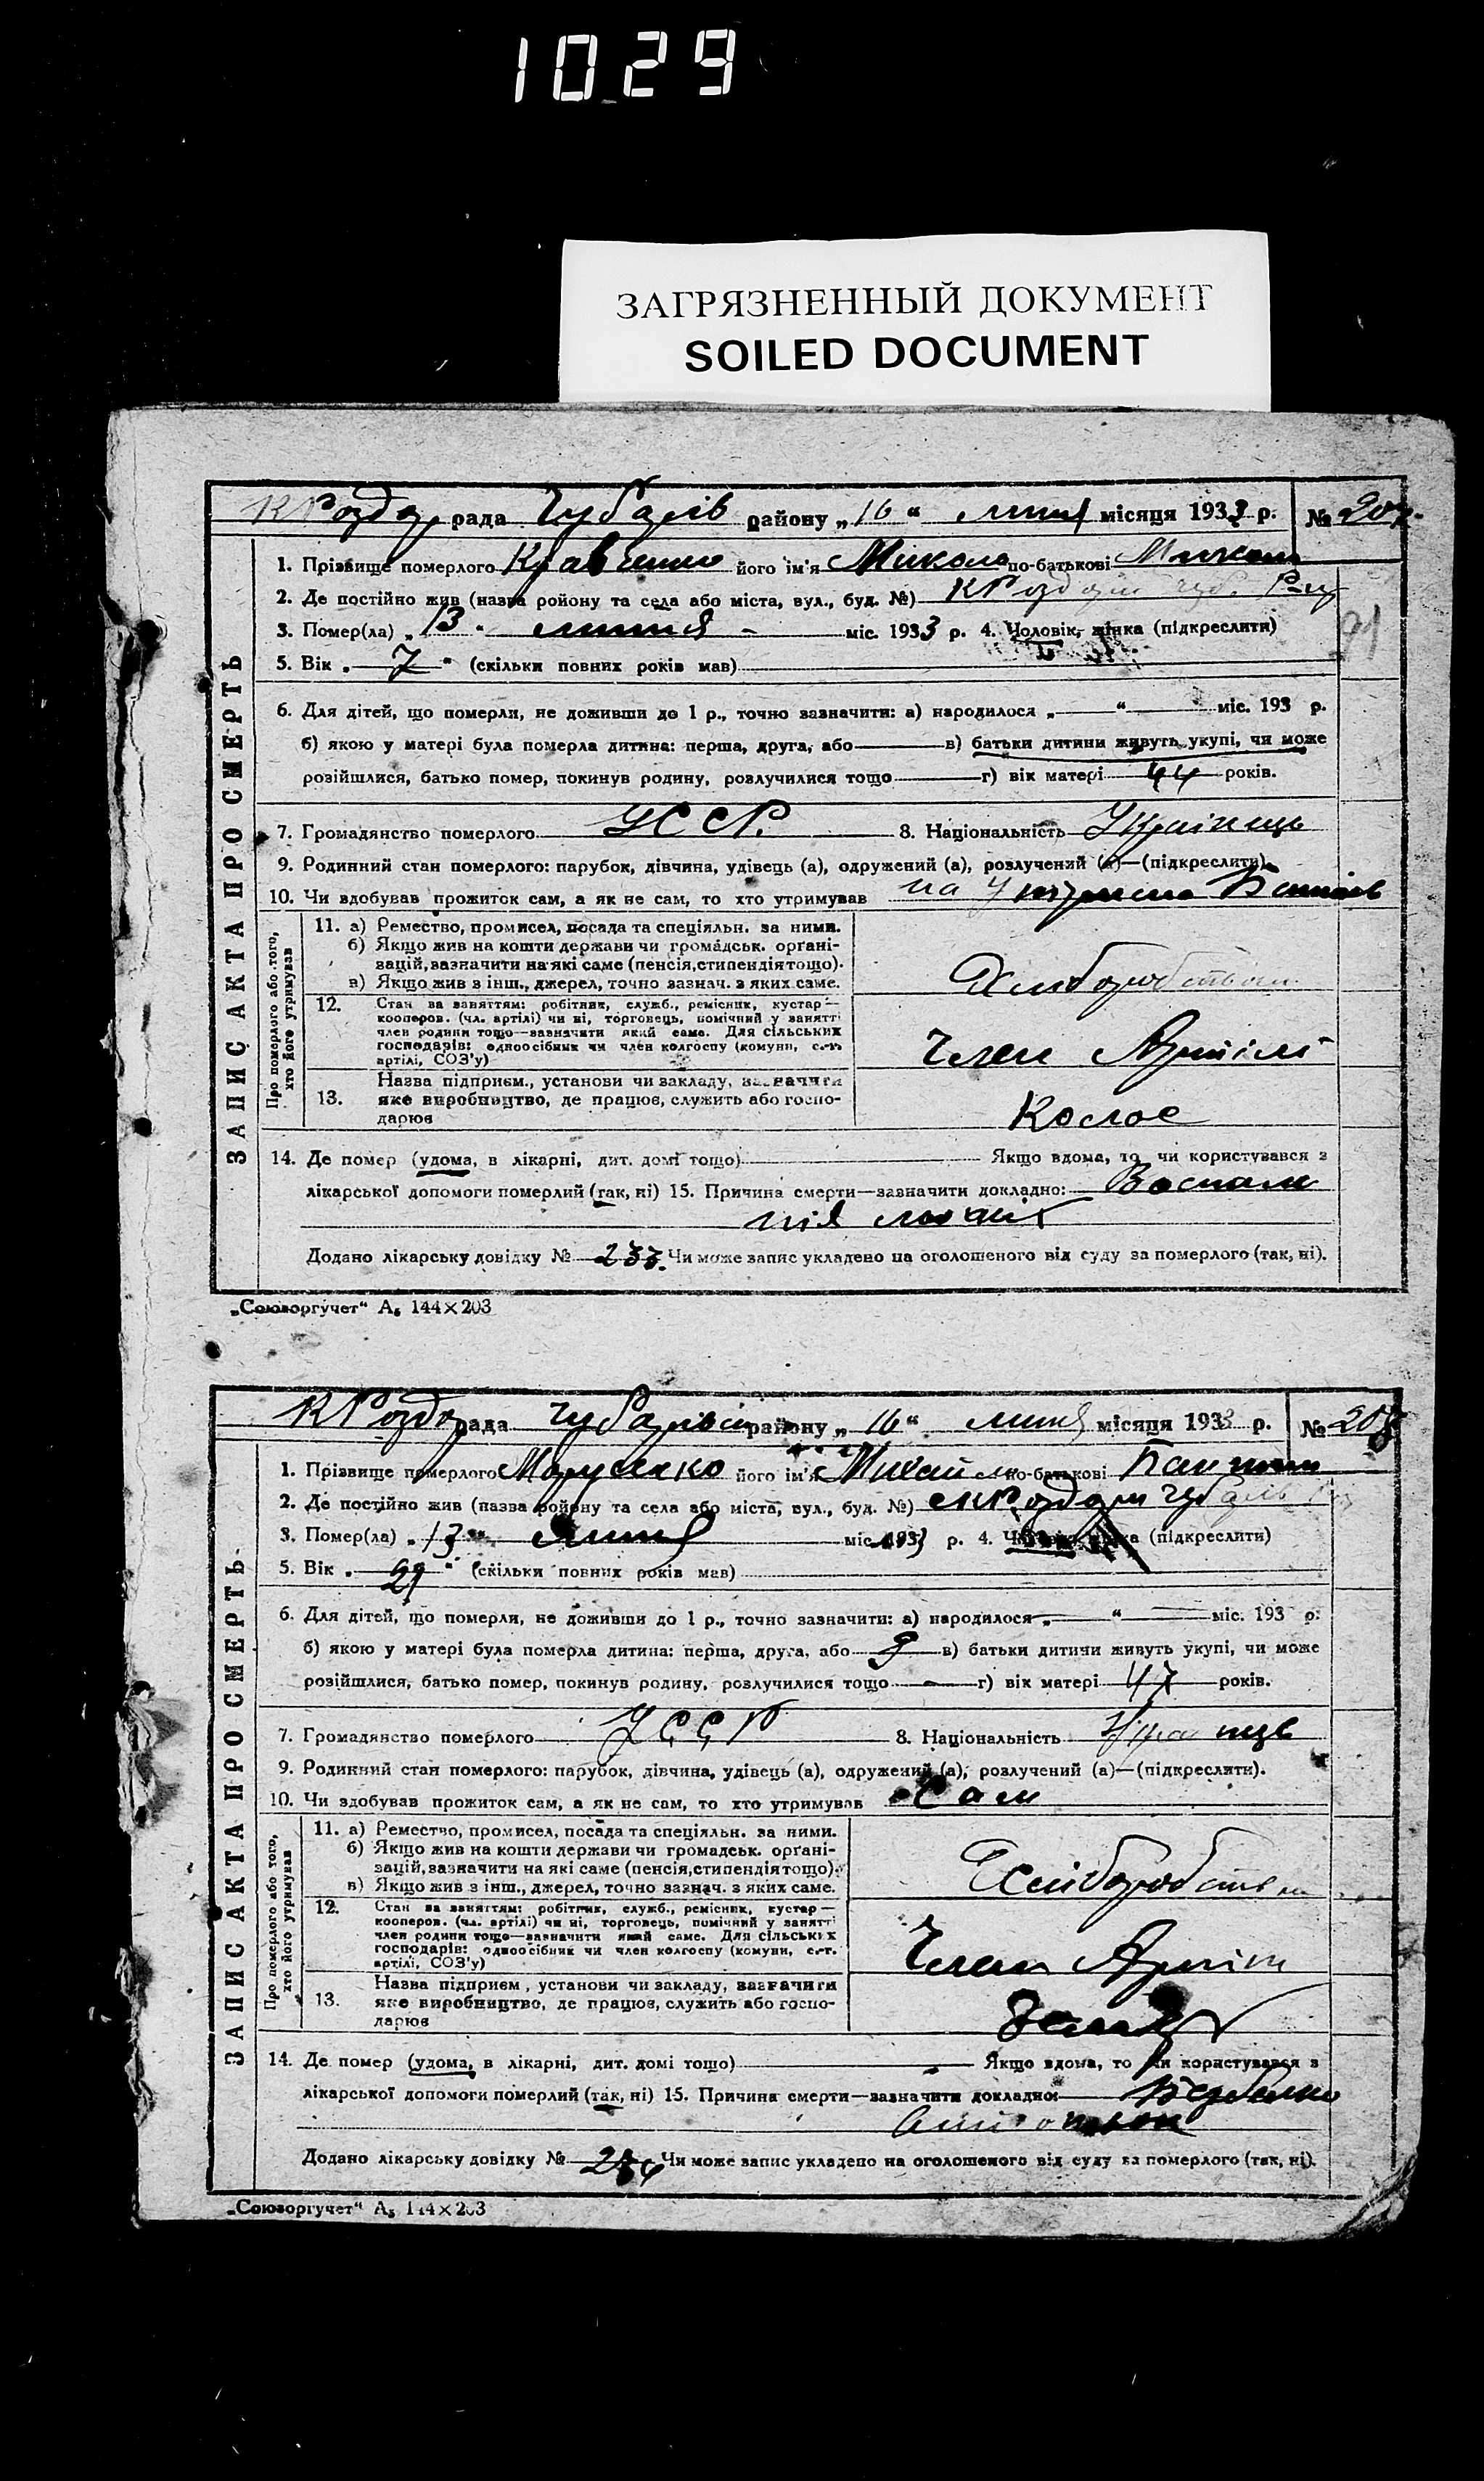 1029
ЗАГРЯЗНЕННЫЙ ДОКУМЕНТ
SOILED DOCUMENT
рада Чубарів району „16“ липня місяця 1933 р. №
91
ЗАПИС АКТА ПРО СМЕРТЬ
1. Прізвище померлого Кравченко його ім'я Микола по-батькові
2. Де постійно жив (назва ройону та села або міста, вул., буд. №)
3. Помер(ла) „13“ липня міс. 1933 р. 4. Чоловік, жінка (підкреслити)
5. Вік „7“ (скільки повних років мав)
6. Для дітей, що померли, не доживши до 1 р., точно зазначити: а) народилося „—“ міс. 193 р.
б) якою у матері була померла дитина: перша, друга, або — в) батьки дитини живуть укупі, чи може
розійшлися, батько помер, покинув родину, розлучилися тощо — г) вік матері 44 років.
7. Громадянство померлого УССР. 8. Національність Українець
9. Родинний стан померлого: парубок, дівчина, удівець (а), одружений (а), розлучений (а)—(підкреслити).
10. Чи здобував прожиток сам, а як не сам, то хто утримував на
Про померлого або того,
хто його утримував
11. а) Ремество, промисел, посада та спеціяльн. за ними.
б) Якщо жив на кошти держави чи громадськ. орґані-
зацій, зазначити на які саме (пенсія, стипендія тощо).
в) Якщо жив з інш., джерел, точно зазнач. з яких саме.
12. Стан за заняттям: робітник, служб., ремісник, кустар—
кооперов. (чл. артілі) чи ні, торговець, помічний у занятті
член родини тощо—зазначити який саме. Для сільських
господарів: одноосібник чи член колгоспу (комуни, с.-г.
артілі, СОЗ'у)
Член Артілі
13. Назва підприєм., установи чи закладу, зазначити
яке виробництво, де працює, служить або госпо-
дарює
Колос
14. Де помер (удома, в лікарні, дит. домі тощо) Якщо вдома, то чи користувався з
лікарської допомоги померлий (так, ні) 15. Причина смерти—зазначити докладно:
Додано лікарську довідку № 233. Чи може запис укладено на оголошеного від суду за померлого (так, ні).
„Союзоргучет“ А₅ 144×203
рада району „16“ липня місяця 1933 р. №
ЗАПИС АКТА ПРО СМЕРТЬ
1. Прізвище померлого його ім'я Михайло по-батькові
2. Де постійно жив (назва ройону та села або міста, вул., буд. №)
3. Помер(ла) „13“ липня міс. 1933 р. 4. (підкреслити)
5. Вік „“ (скільки повних років мав)
6. Для дітей, що померли, не доживши до 1 р., точно зазначити: а) народилося „—“ міс. 193 р.
б) якою у матері була померла дитина: перша, друга, або в) батьки дитини живуть укупі, чи може
розійшлися, батько помер, покинув родину, розлучилися тощо — г) вік матері 47 років.
7. Громадянство померлого УССР 8. Національність
9. Родинний стан померлого: парубок, дівчина, удівець (а), одружений (а), розлучений (а)—(підкреслити).
10. Чи здобував прожиток сам, а як не сам, то хто утримував Сам
Про померлого або того,
хто його утримував
11. а) Ремество, промисел, посада та спеціяльн. за ними.
б) Якщо жив на кошти держави чи громадськ. орґані-
зацій, зазначити на які саме (пенсія, стипендія тощо).
в) Якщо жив з інш., джерел, точно зазнач. з яких саме.
12. Стан за заняттям: робітник, служб., ремісник, кустар—
кооперов. (чл. артілі) чи ні, торговець, помічний у занятті
член родини тощо—зазначити який саме. Для сільських
господарів: одноосібник чи член колгоспу (комуни, с.-г.
артілі, СОЗ'у)
Член
13. Назва підприєм., установи чи закладу, зазначити
яке виробництво, де працює, служить або госпо-
дарює
14. Де помер (удома, в лікарні, дит. домі тощо) Якщо вдома, то чи користувався з
лікарської допомоги померлий (так, ні) 15. Причина смерти—зазначити докладно:
Додано лікарську довідку № Чи може запис укладено на оголошеного від суду за померлого (так, ні).
„Союзоргучет“ А₅ 144×203